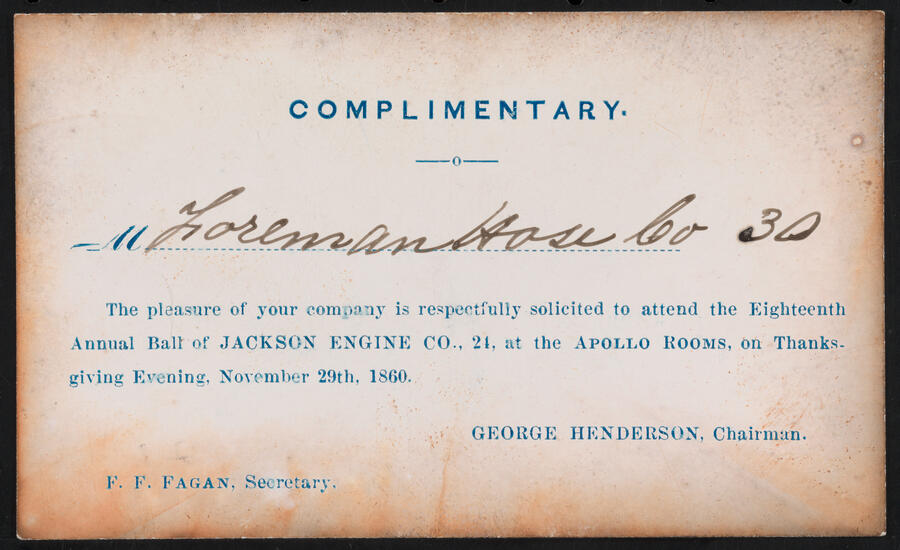 COMPLIMENTARY.
o
M Foreman Hose Co 30
The pleasure of your company is respectfully solicited to attend the Eighteenth
Annual Ball of JACKSON ENGINE CO., 24, at the APOLLO ROOMS, on Thanks-
giving Evening, November 29th, 1860.
GEORGE HENDERSON, Chairman.
F. F. FAGAN, Secretary.